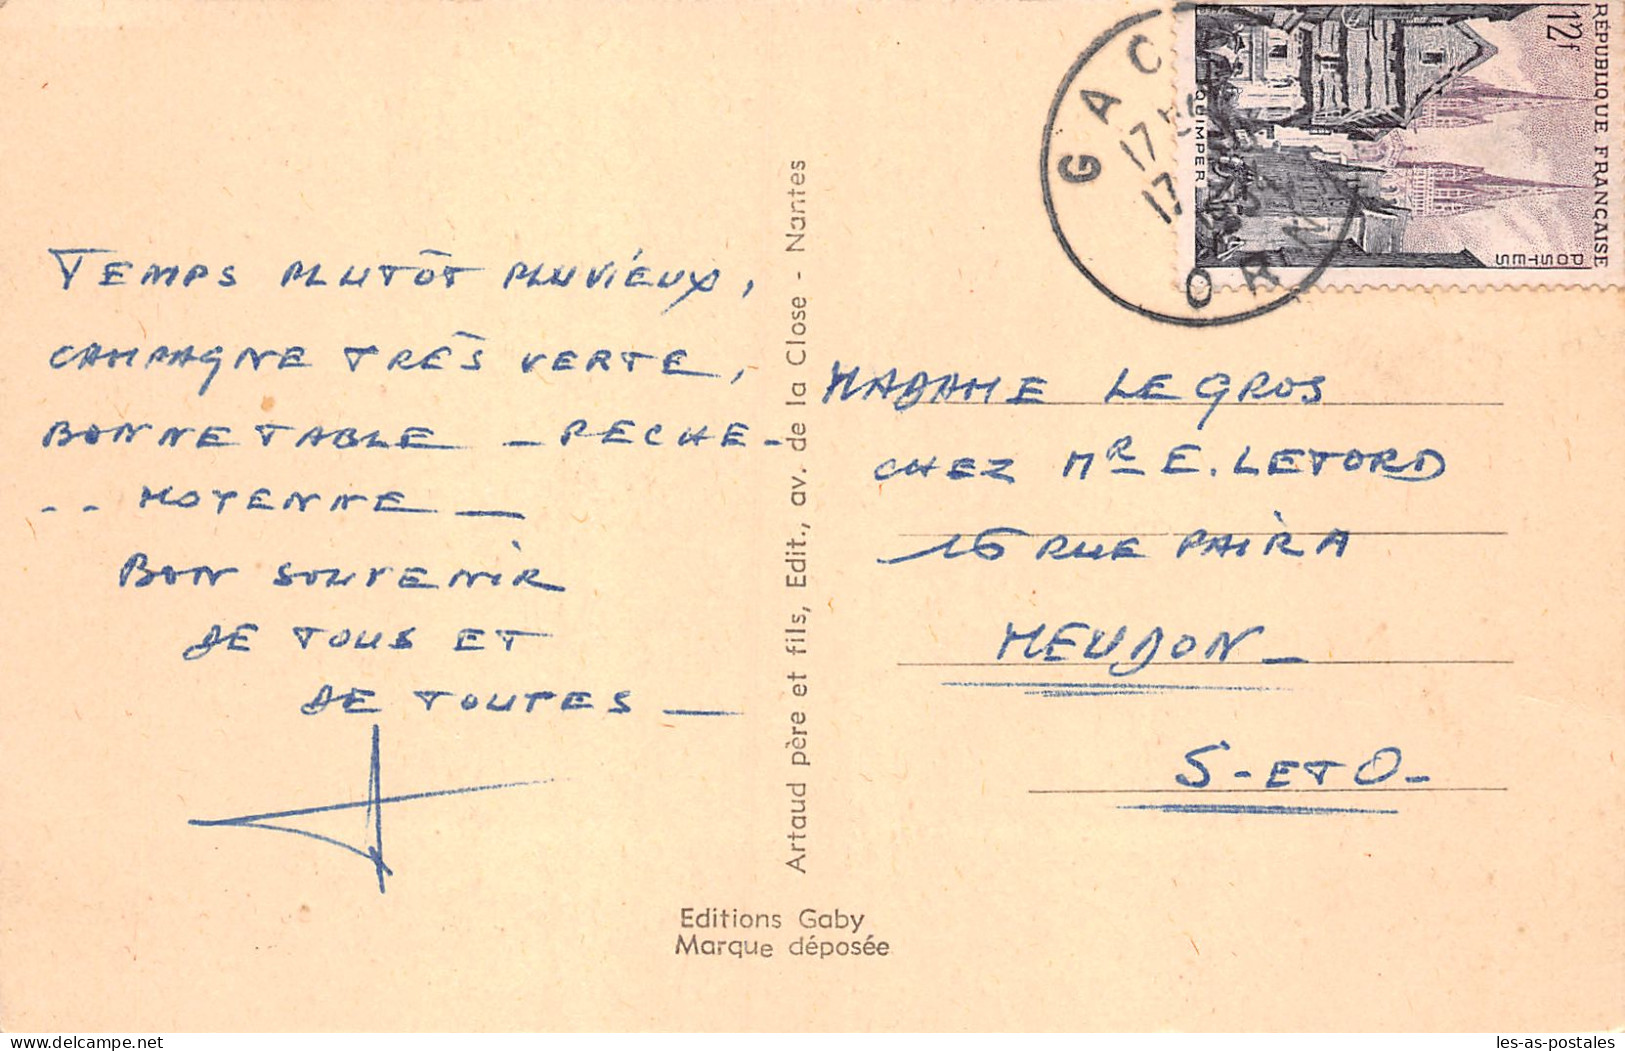 TEMPS PLUTÔT PLUVIEUX,
CAMPAGNE TRÈS VERTE,
BONNE TABLE — PECHE -
.. MOYENNE —
BON SOUVENIR
DE TOUS ET
DE TOUTES —
Artaud père et fils, Edit., av. de la Close - Nantes
Editions Gaby
Marque déposée
GAC
17
17
ORN
RÉPUBLIQUE FRANÇAISE
12f
POSTES
QUIMPER
MADAME LEGROS
CHEZ MR E. LETORD
16 RUE PAIRA
MEUDON —
S-ET O-
les-as-postales
delcampe.net